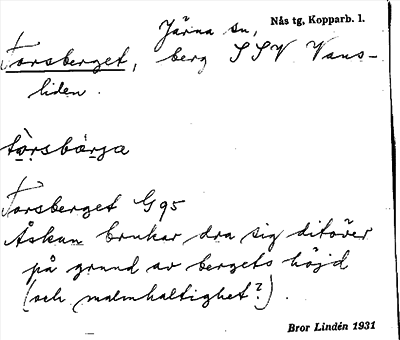 Järna sn, Nås tg, Kopparb. l.
Torsberget, berg SSV Vans-
liden.
tòrsbærja
Torsberget G95
Åskan brukar dra sig ditöver
på grund av bergets höjd
(och malmhaltighet?).
Bror Lindén 1931